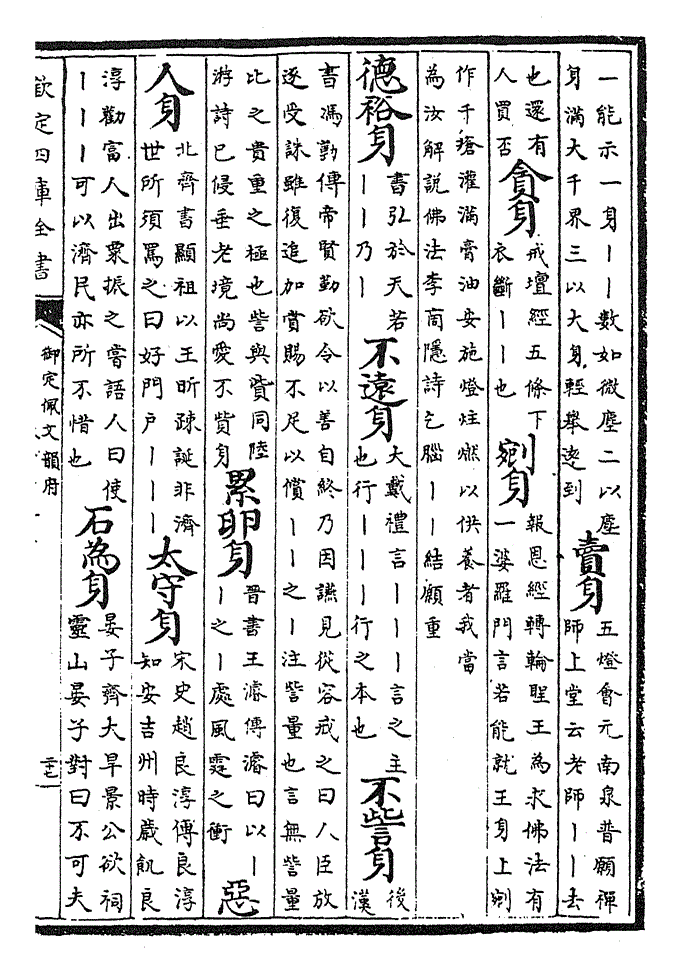 一能示一身丨丨數如微塵二以塵
身滿大千界三以大身輕舉逺到
賣身
五燈會元南泉普願禪
師上堂云老師丨丨去
也還有
人買否
貪身
戒壇經五條下
衣斷丨丨也
剜身
報恩經轉輪聖王為求佛法有
一婆羅門言若能就王身上剜
作千瘡灌滿膏油安施燈炷燃以供養者我當
為汝解説佛法李商隱詩乞腦丨丨結願重
德裕身
書弘於天若
丨丨乃丨
不遠身
大戴禮言丨丨丨言之主
也行丨丨丨行之本也
不訾身
後
漢
書馮勤傳帝賢勤欲令以善自終乃因讌見從容戒之曰人臣放
逐受誅雖復追加賞賜不足以償丨丨之丨注訾量也言無訾量
比之貴重之極也訾與貲同陸
游詩已侵垂老境尚愛不貲身
累卵身
晉書王濬傳濬曰以丨
丨之丨處風霆之衝
惡
人身
北齊書顯祖以王昕疎誕非濟
世所須罵之曰好門户丨丨丨
太守身
宋史趙良淳傳良淳
知安吉州時歲飢良
淳勸富人出粟振之嘗語人曰使
丨丨丨可以濟民亦所不惜也
石為身
晏子齊大旱景公欲祠
靈山晏子對曰不可夫
欽定四庫全書
御定佩文韻府